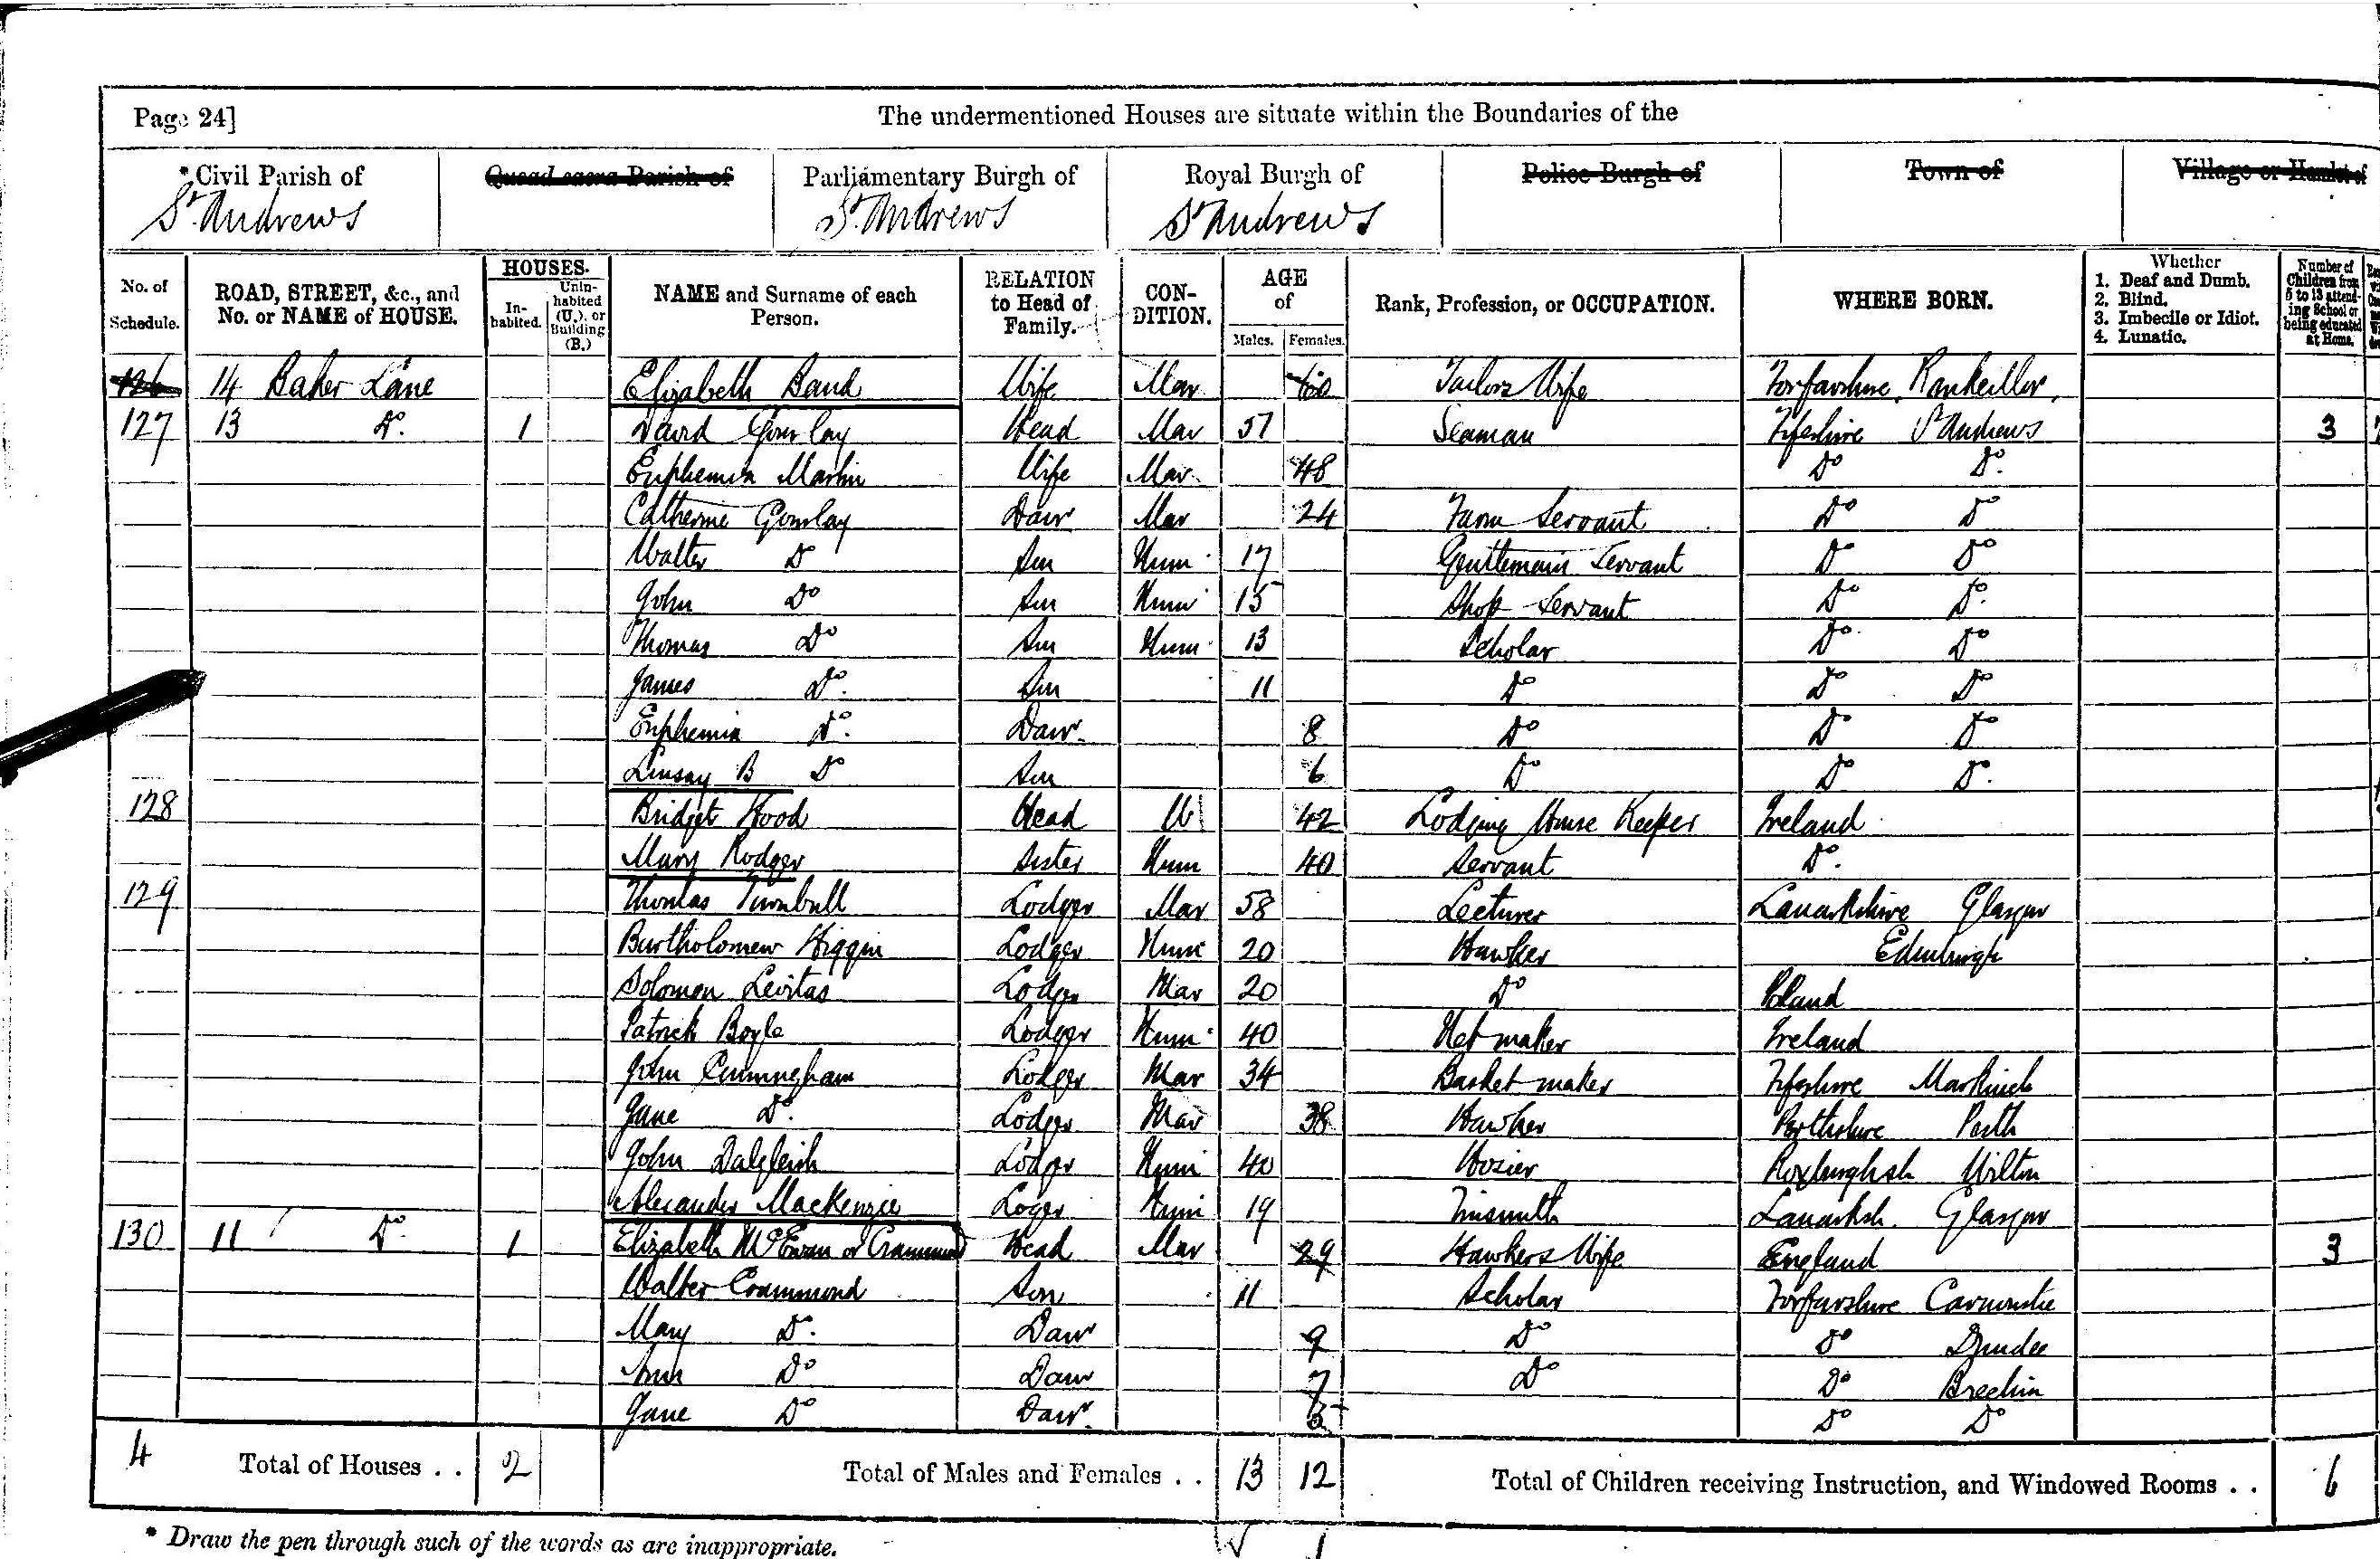 Page 24]
The undermentioned Houses are situate within the Boundaries of the
*Civil Parish of
Quoad sacra Parish of
Parliamentary Burgh of
Royal Burgh of
Police Burgh of
Town of
Village or Hamlet of
St. Andrews St. Andrews St Andrews
No. of Schedule.
ROAD, STREET, &c., and No. or NAME of HOUSE.
HOUSES.
In-habited.
Unin-habited (U.), or Building (B.)
NAME and Surname of each Person.
RELATION to Head of Family.
CON-DITION.
AGE of
Males. Females.
Rank, Profession, or OCCUPATION.
WHERE BORN.
Whether
1. Deaf and Dumb.
2. Blind.
3. Imbecile or Idiot.
4. Lunatic.
Number of Children from 5 to 13 attend-ing School or being educated at Home.
126 14 Baker Lane Elizabeth Band Wife Mar 60 Tailors Wife Forfarshire, Rankeillor,
127 13 Do. 1 David Gourlay Head Mar 57 Seaman Fifeshire St Andrews 3
Euphemia Martin Wife Mar 48 Do Do.
Catherine Gourlay Daur Mar 24 Farm Servant Do Do
Walter Do Son Unm 17 Gentlemans Servant Do Do
John Do Son Unm 15 Shop Servant Do Do.
Thomas Do Son Unm 13 Scholar Do Do
James Do. Son 11 Do Do Do
Euphemia Do. Daur 8 Do Do Do
Linsay B Do Son 6 Do Do Do.
128 Bridget Wood Head W 42 Lodging House Keeper Ireland
Mary Rodger Sister Unm 40 Servant Do.
129 Thomas Turnbull Lodger Mar 58 Lecturer Lanarkshire Glasgow
Bartholomew Higgin Lodger Unm 20 Hawker Edinburgh
Solomon Levitas Lodger Mar 20 Do Poland
Patrick Boyle Lodger Unm 40 Net maker Ireland
John Cunningham Lodger Mar 34 Basket maker Fifeshire Markinch
Jane Do. Lodger Mar 38 Hawker Perthshire Perth
John Dalgleish Lodger Unm 40 Hosier Roxburghsh Wilton
Alexander MacKenzie Loger Unm 19 Tinsmith Lanarksh. Glasgow
130 11 Do. 1 Elizabeth McEwan or Crammond Head Mar 29 Hawkers Wife England 3
Walter Crammond Son 11 Scholar Forfarshire Carnoustie
Mary Do. Daur 9 Do Do Dundee
Ann Do Daur 7 Do Do Brechin
Jane Do Daur. 5 Do Do
4 Total of Houses . . 2 Total of Males and Females . . 13 12 Total of Children receiving Instruction, and Windowed Rooms . . 6
* Draw the pen through such of the words as are inappropriate.